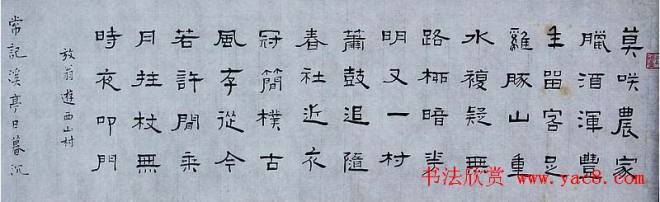 莫咲農家
臘酒渾豐
年留客足
雞豚山重
水複疑無
路柳暗花
明又一村
簫鼓追隨
春社近衣
冠簡樸古
風存從今
若許閒乘
月拄杖無
時夜叩門
放翁遊西山村
常記溪亭日暮沉
书法欣赏
www.yac8.com